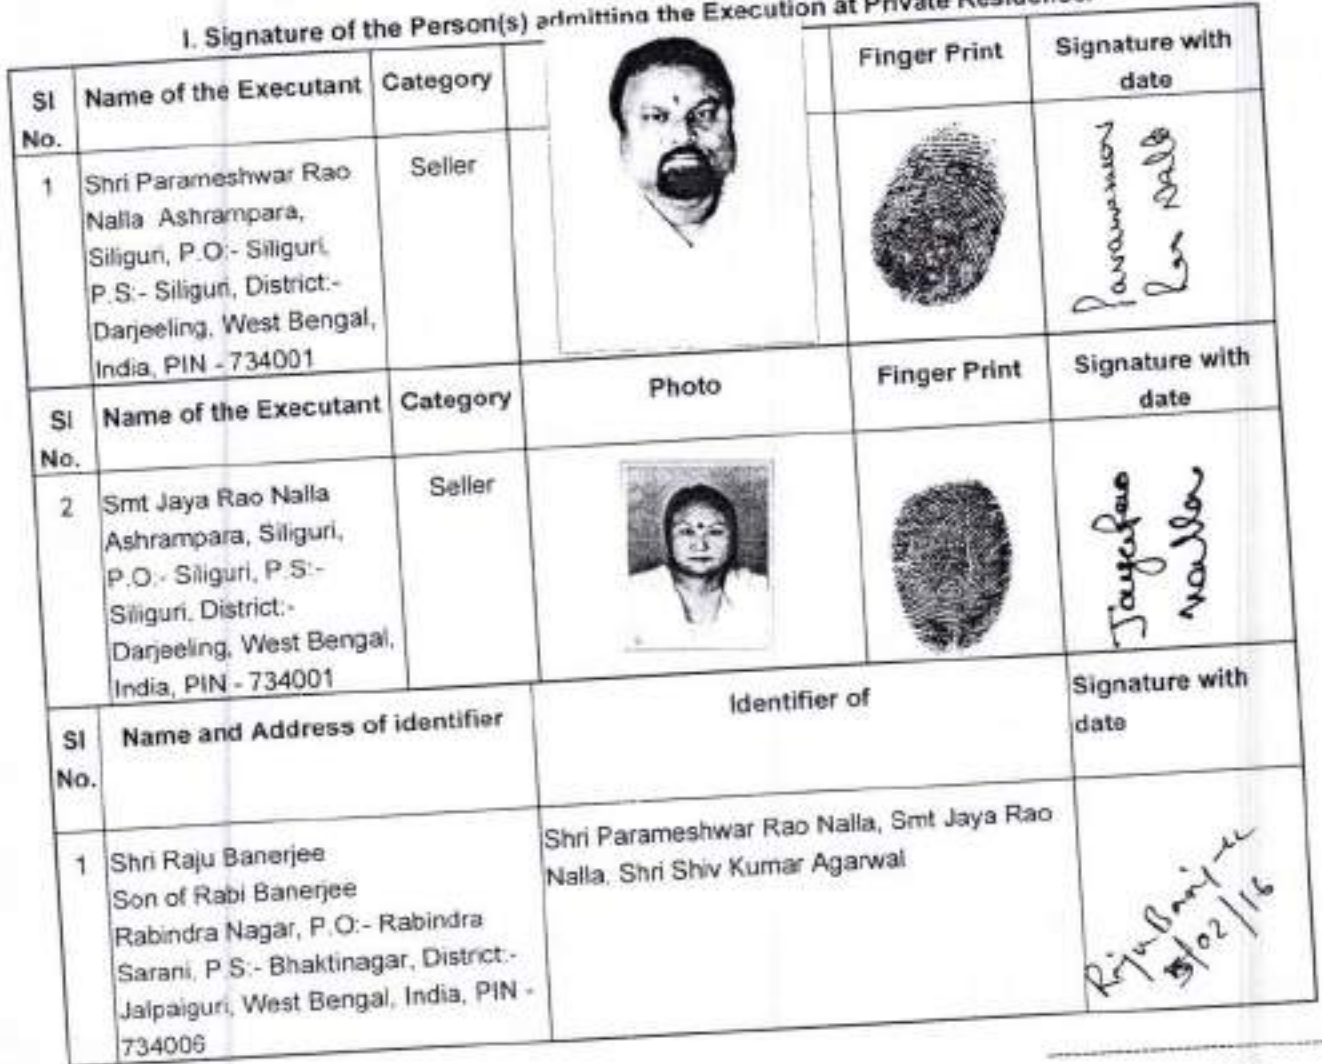 I. Signature of the Person(s) admitting the Execution at Private
SI No. Name of the Executant Category Finger Print Signature with date
1 Shri Parameshwar Rao Seller
Nalla Ashrampara,
Siliguri, P.O:- Siliguri,
P.S:- Siliguri, District:-
Darjeeling, West Bengal,
India, PIN - 734001
Parameshwar
Rao Nalla
SI No. Name of the Executant Category Photo Finger Print Signature with date
2 Smt Jaya Rao Nalla Seller
Ashrampara, Siliguri,
P.O:- Siliguri, P.S:-
Siliguri, District:-
Darjeeling, West Bengal,
India, PIN - 734001
Jaya Rao
Nalla
SI No. Name and Address of identifier Identifier of Signature with date
1 Shri Raju Banerjee
Son of Rabi Banerjee
Rabindra Nagar, P.O:- Rabindra
Sarani, P.S:- Bhaktinagar, District:-
Jalpaiguri, West Bengal, India, PIN -
734006
Shri Parameshwar Rao Nalla, Smt Jaya Rao
Nalla, Shri Shiv Kumar Agarwal
Raju Banerjee
/02/16